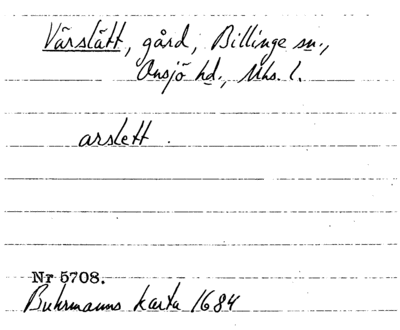 Värslätt, gård, Billinge sn.,
Onsjö hd., Mhs. l.
arslett.
Nr 5708.
Buhrmanns karta 1684